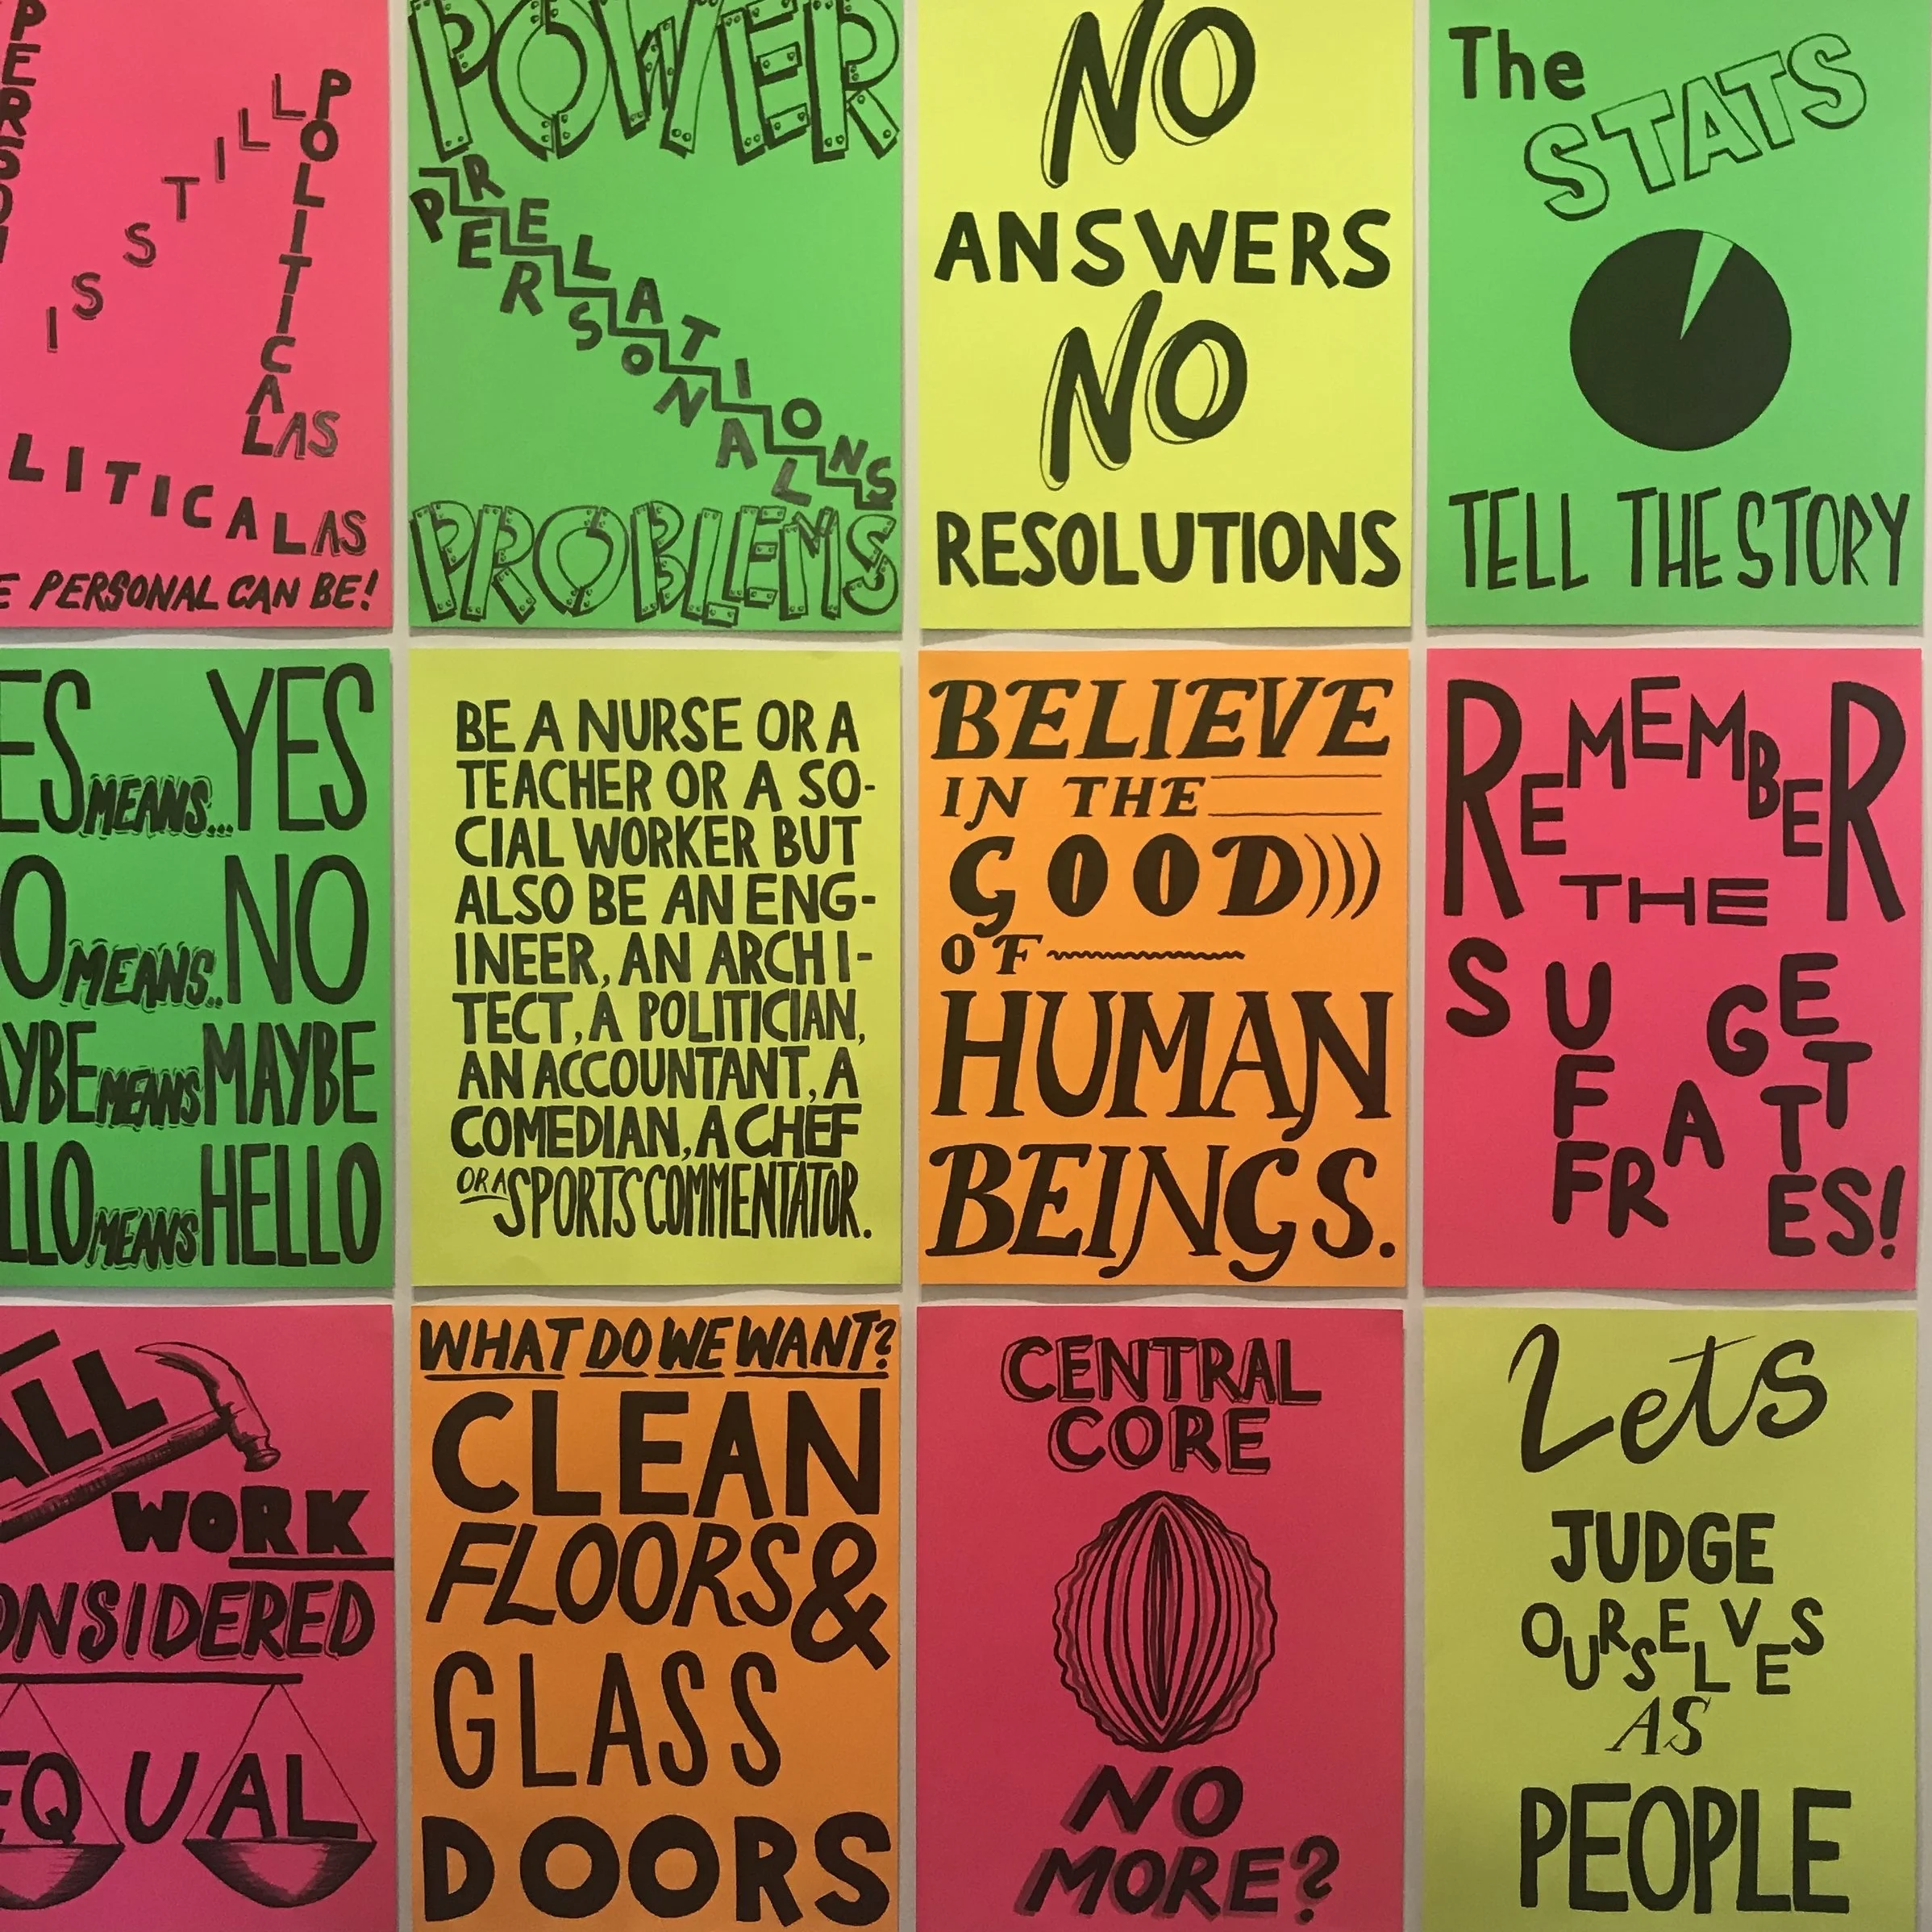 IS STILL
POLITICAL AS
LITICAL AS
PERSONAL CAN BE!
POWER
RELATIONS
PERSONAL
PROBLEMS
NO
ANSWERS
NO
RESOLUTIONS
The
STATS
TELL THE STORY
MEANS... YES
MEANS.. NO
MEANS MAYBE
MEANS HELLO
BE A NURSE OR A
TEACHER OR A SO-
CIAL WORKER BUT
ALSO BE AN ENG-
INEER, AN ARCHI-
TECT, A POLITICIAN,
AN ACCOUNTANT, A
COMEDIAN, A CHEF
OR A SPORTS COMMENTATOR.
BELIEVE
IN THE
GOOD)))
OF
HUMAN
BEINGS.
REMEMBER
THE
SUFFRAGETTES!
ALL
WORK
ONSIDERED
EQUAL
WHAT DO WE WANT?
CLEAN
FLOORS &
GLASS
DOORS
CENTRAL
CORE
NO
MORE?
Lets
JUDGE
OURSELVES
AS
PEOPLE